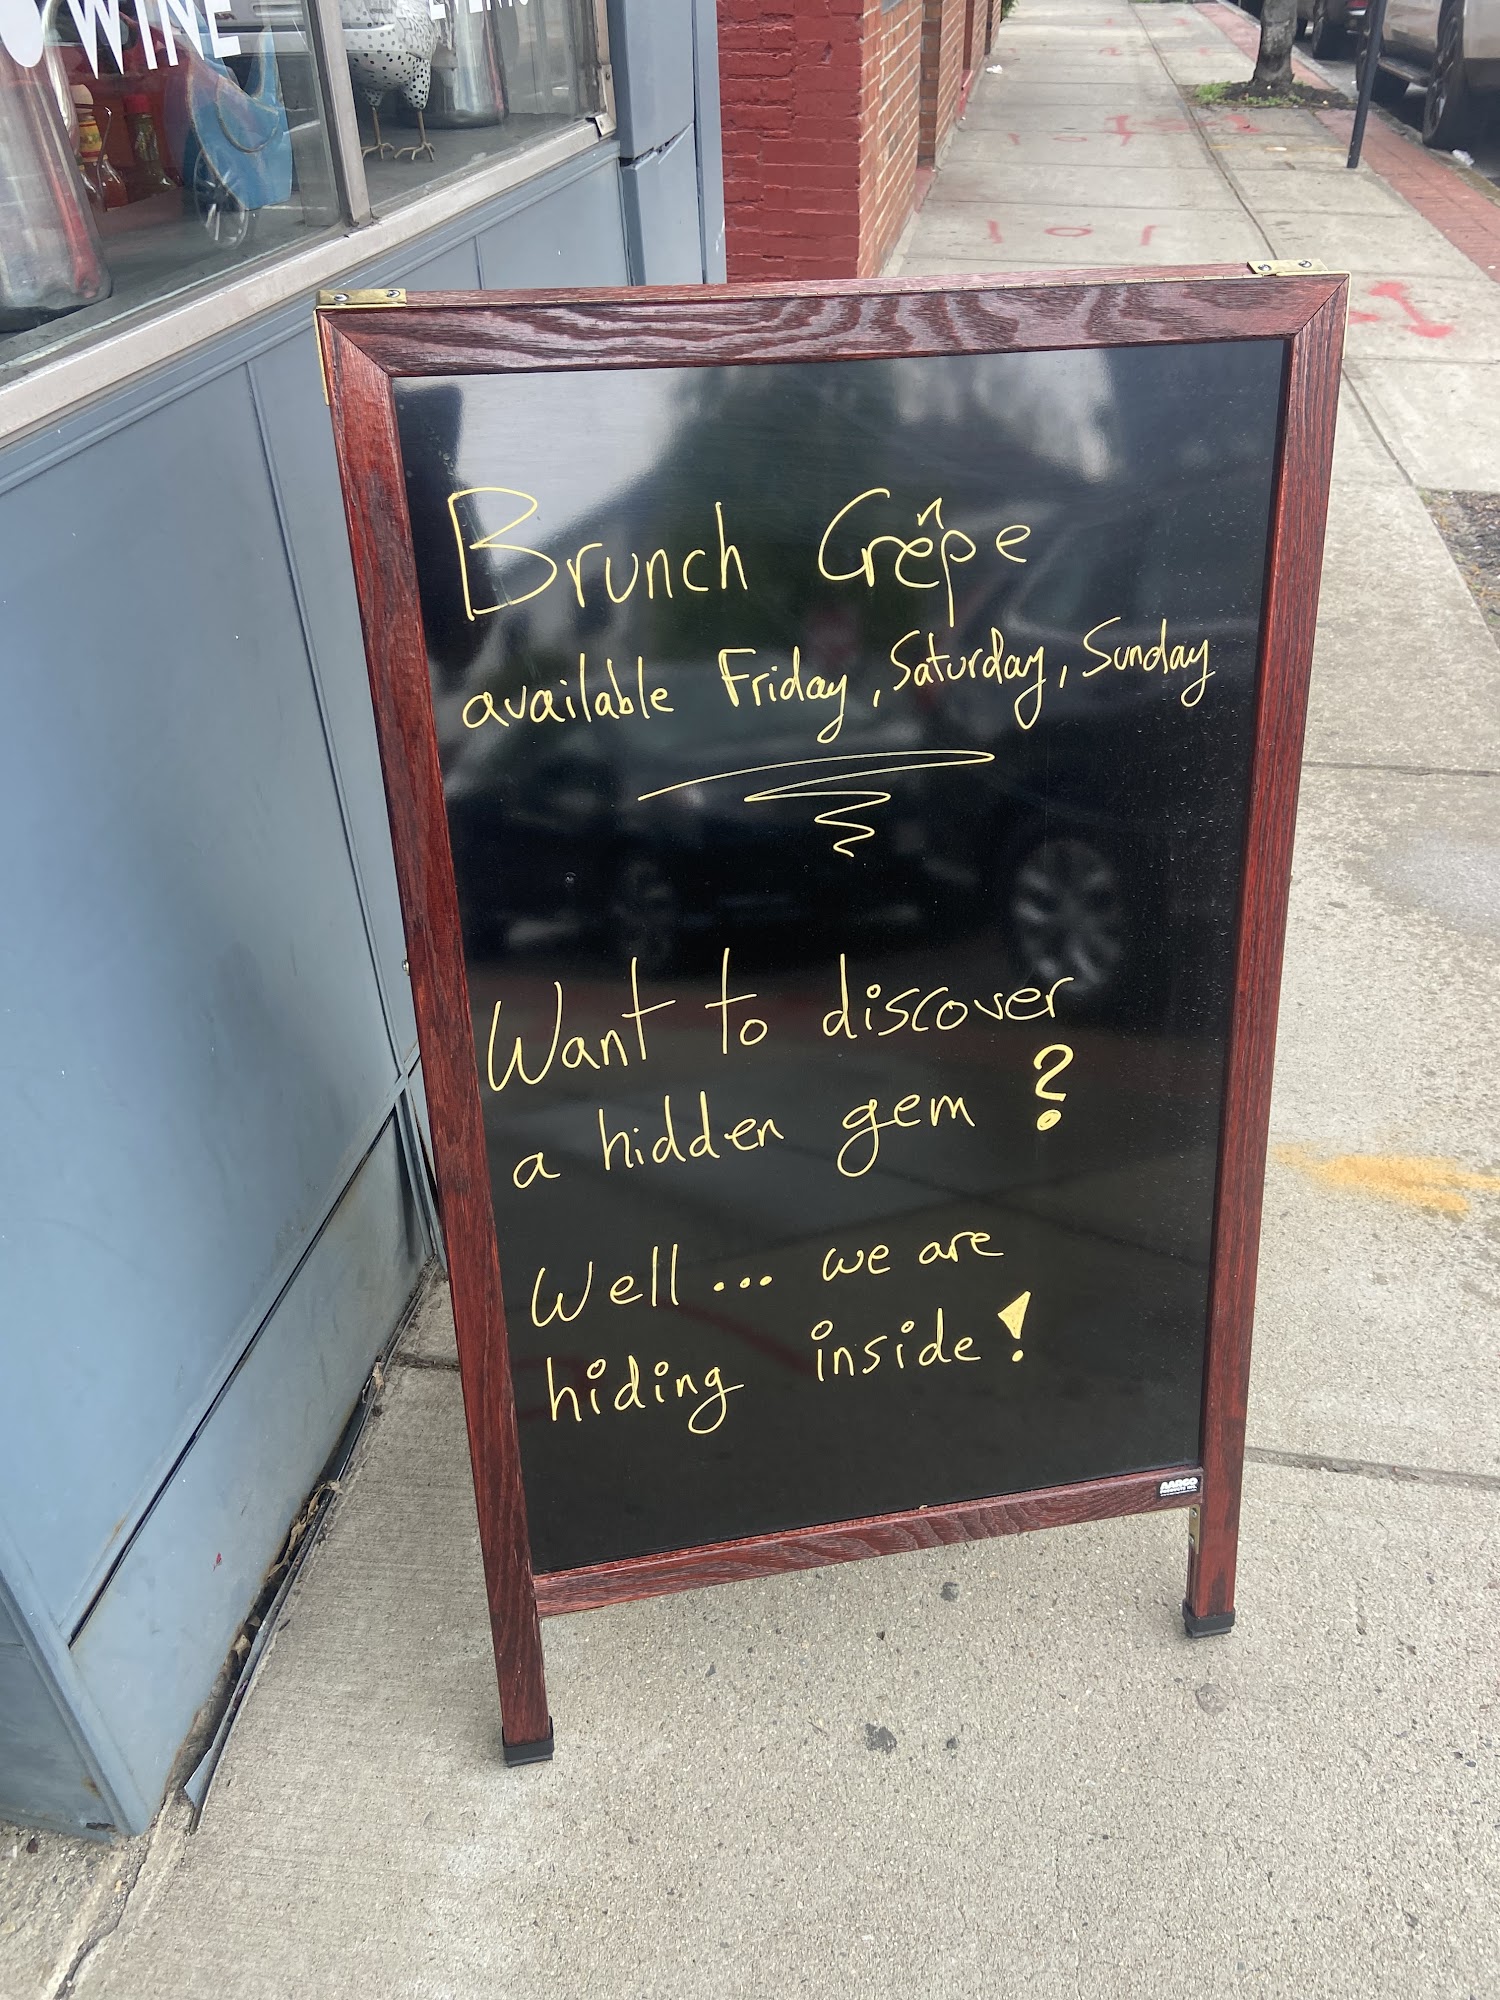 WINE
Brunch Crêpe
available Friday, Saturday, Sunday
Want to discover
a hidden gem?
Well... we are
hiding inside!
AARCO